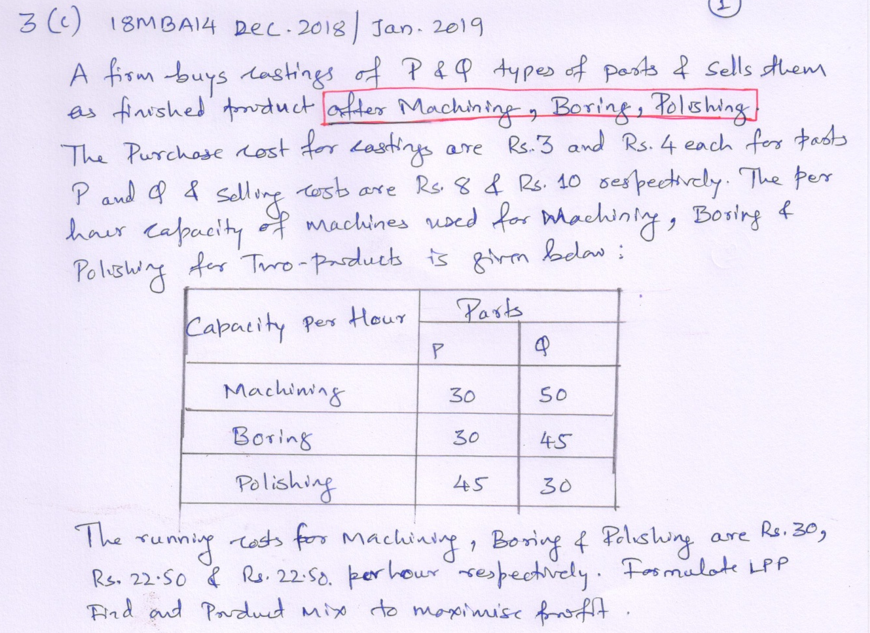 1
3 (c) 18MBA14 Dec. 2018/ Jan. 2019
A firm buys castings of P & Q types of parts & sells them
as finished product after Machining, Boring, Polishing.
The Purchase cost for castings are Rs. 3 and Rs. 4 each for parts
P and Q & selling costs are Rs. 8 & Rs. 10 respectively. The per
hour capacity of machines used for Machining, Boring &
Polishing for Two-products is given below :
Capacity Per Hour Parts
P Q
Machining 30 50
Boring 30 45
Polishing 45 30
The running costs for Machining, Boring & Polishing are Rs. 30,
Rs. 22.50 & Rs. 22.50. per hour respectively. Formulate LPP
Find out Product Mix to maximise profit.